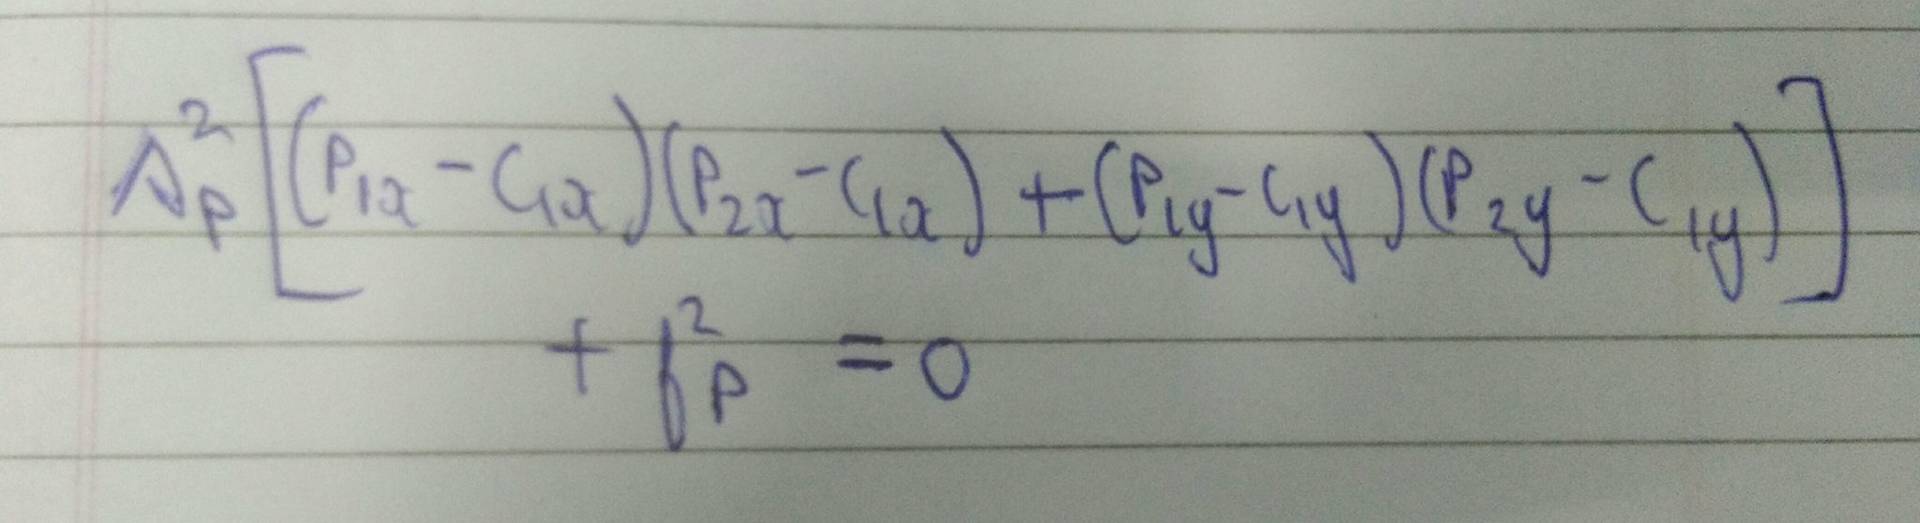 Λ²ₚ[(P₁ₓ - C₁ₓ)(P₂ₓ - C₁ₓ) + (P₁y - C₁y)(P₂y - C₁y)]
+ f²ₚ = 0